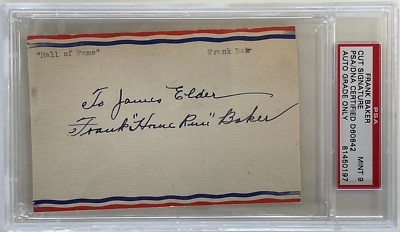 "Hall of Fame" Frank Baker
To James Elder
Frank "Home Run" Baker
PSA
FRANK BAKER
CUT SIGNATURE
PSA/DNA CERTIFIED D60842
AUTO GRADE ONLY
MINT 9
81450197